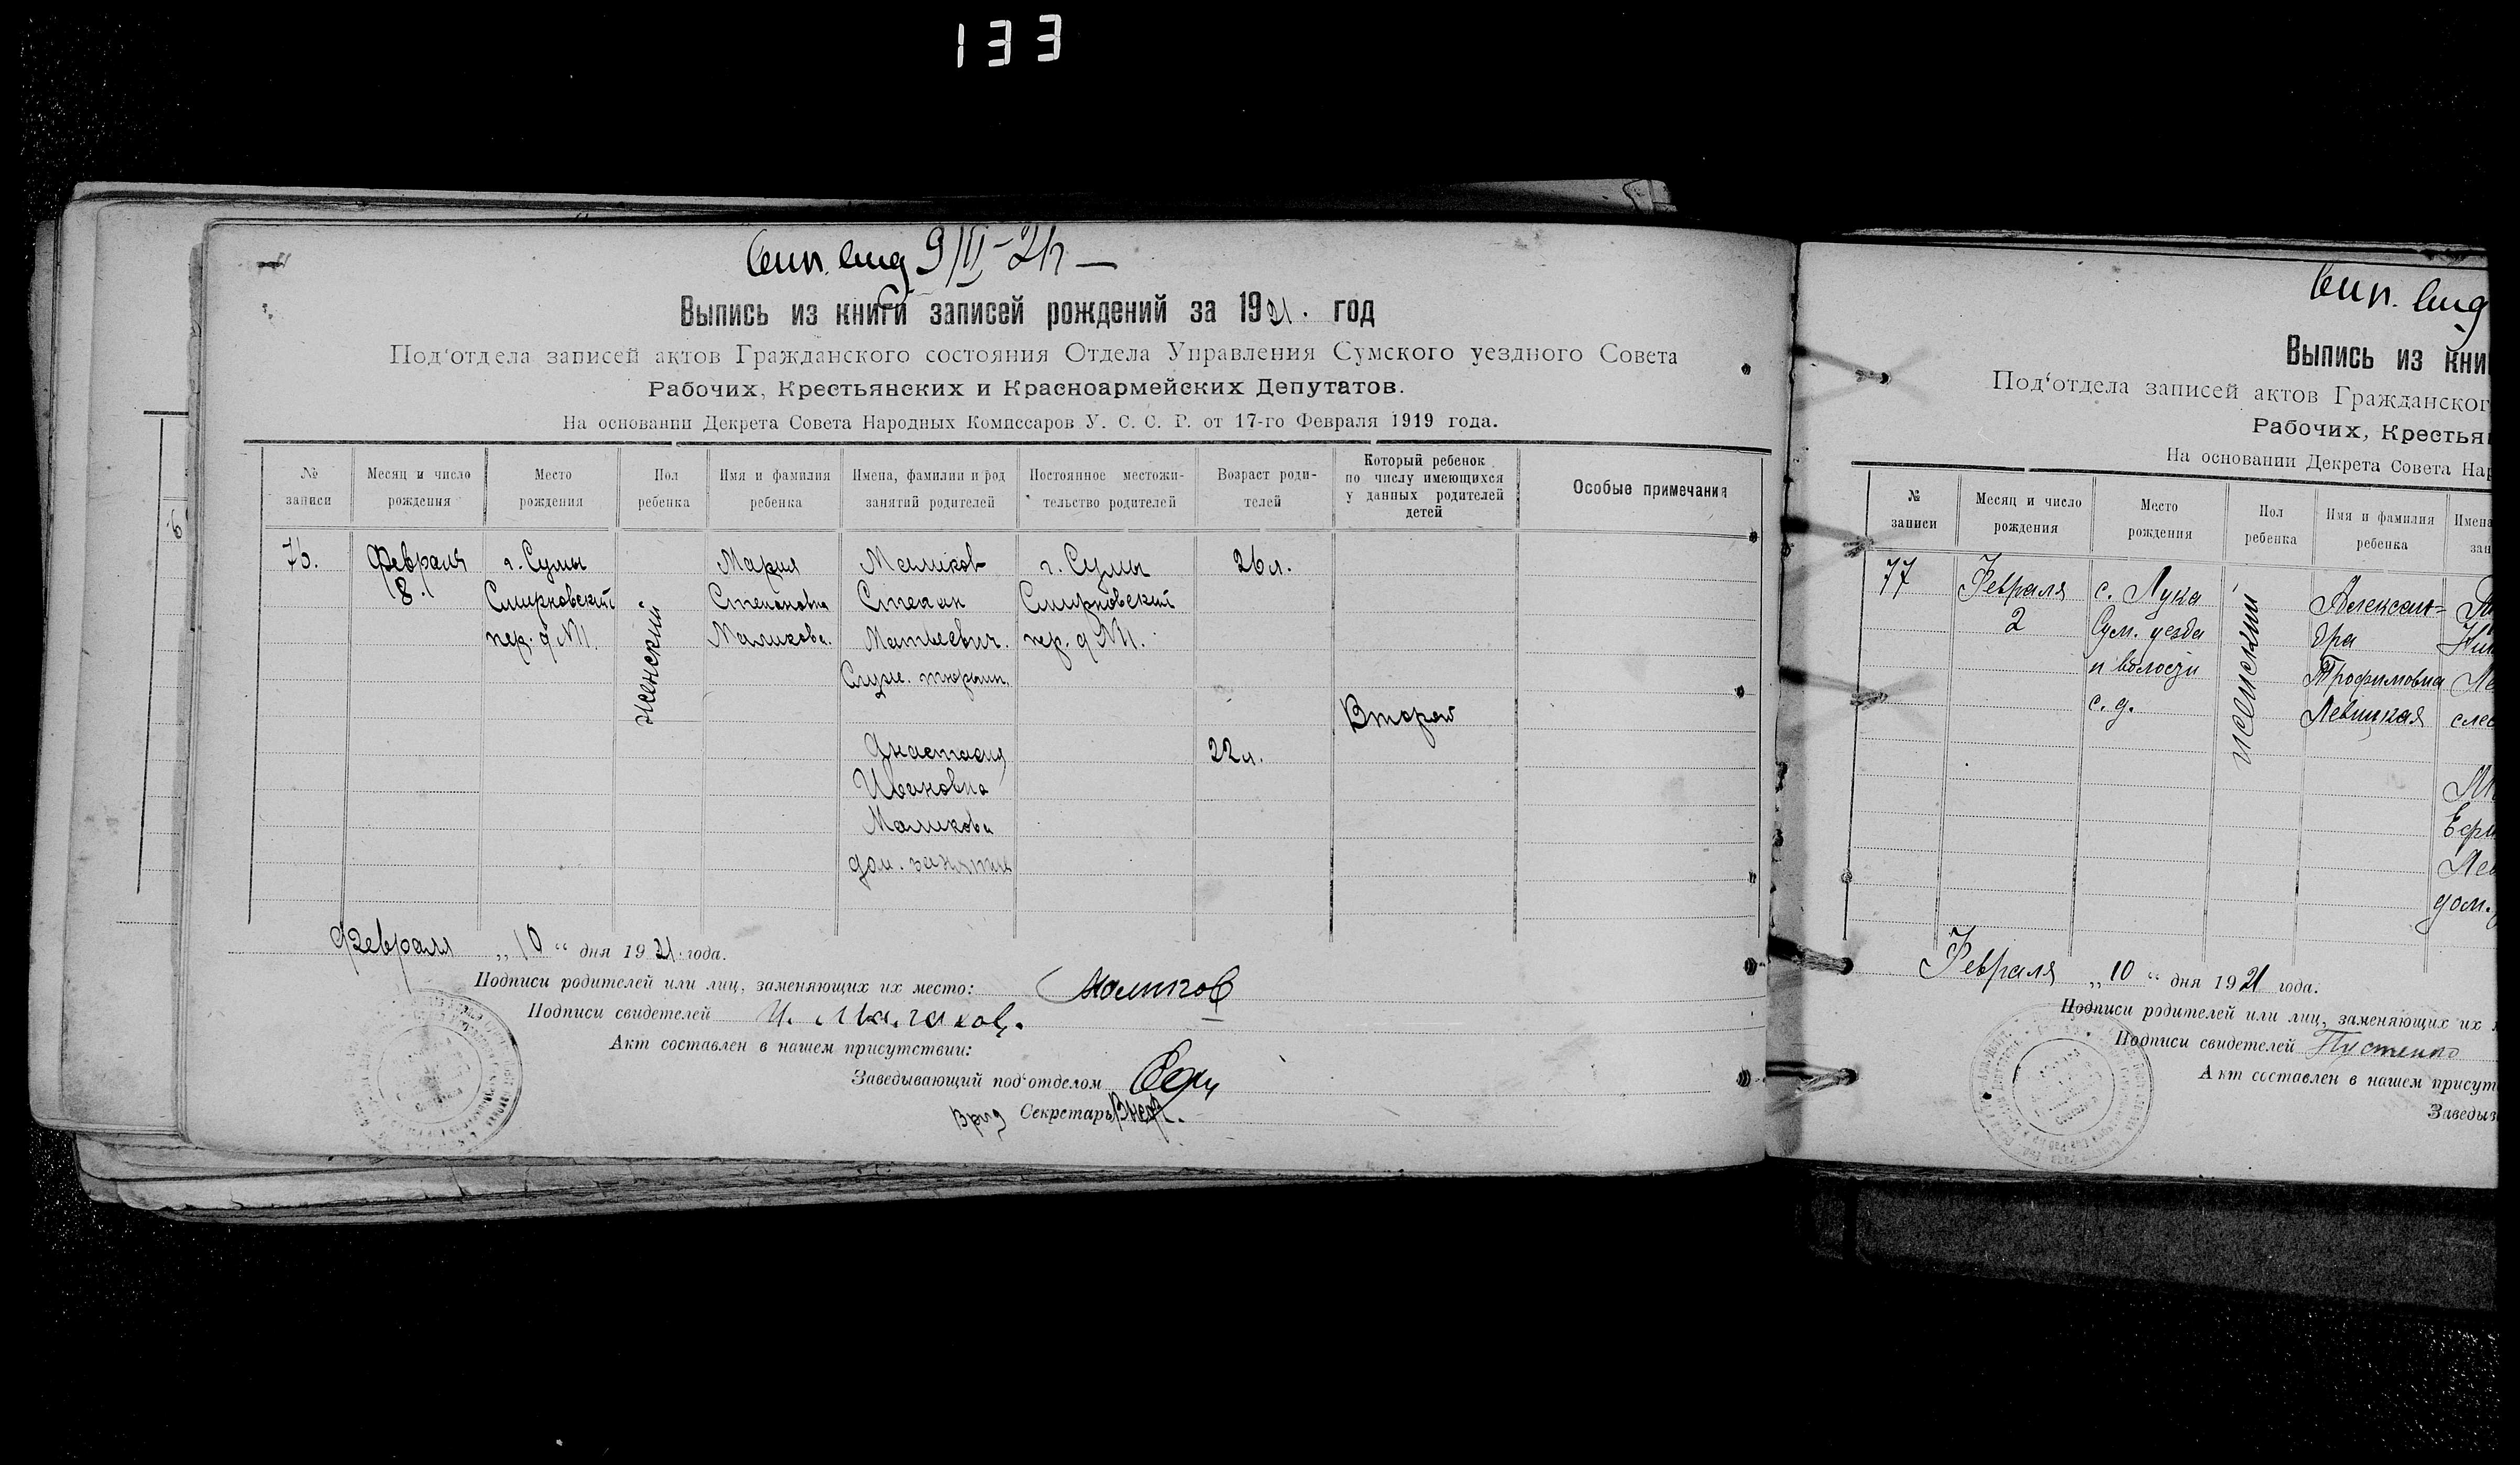 133
9/II-21
Выпись из книги записей рождений за 1921. год
Под‘отдела записей актов Гражданского состояния Отдела Управления Сумского уездного Совета
Рабочих, Крестьянских и Красноармейских Депутатов.
На основании Декрета Совета Народных Комиссаров У. С. С. Р. от 17-го Февраля 1919 года.
№ записи
Месяц и число рождения
Место рождения
Пол ребенка
Имя и фамилия ребенка
Имена, фамилии и род занятий родителей
Постоянное местожительство родителей
Возраст родителей
Который ребенок по числу имеющихся у данных родителей детей
Особые примечания
76.
Февраля
8.
г. Сумы
Смирновский
пер. д №1.
женский
Мария
Степановна
Маликова.
Маликов
Степан
Матвеевич.
Служ. тюрьм.
Анастасия
Ивановна
Маликова
дом. занятие
г. Сумы
Смирновский
пер. д №1.
26 л.
22 л.
Второй
Февраля „10“ дня 1921 года.
Подписи родителей или лиц, заменяющих их место: Маликов
Подписи свидетелей
Акт составлен в нашем присутствии:
Заведывающий под‘отделом
Врид Секретарь
Выпись из кни
Под‘отдела записей актов Гражданског
Рабочих, Крестья
На основании Декрета Совета На
№ записи
Месяц и число рождения
Место рождения
Пол ребенка
Имя и фамилия ребенка
Имена
зан
77
Февраля
2
с. Лука
Сум. уезда
и волости
с. д.
женский
Алексан=
дра
Трофимовна
Левицкая
Февраля „10“ дня 1921 года.
Подписи родителей или лиц, заменяющих их
Подписи свидетелей
Акт составлен в нашем присут
Заведыв